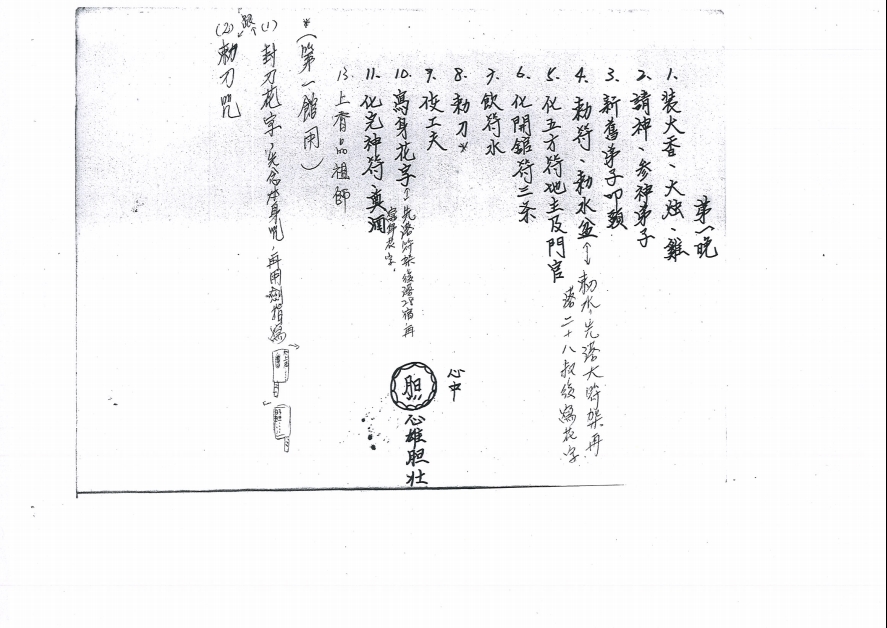 第一晚
1. 装大香、大烛、雞
2. 請神、參神弟子
3. 新舊弟子叩頭
4. 勅符、勅水盆
勅水、先落大符架再
落二十八叔後寫花字
5. 化五方符地主及門官
6. 化開舘符三条
7. 飲符水
8. 勅刀*
9. 使工夫
10. 寫身花字
先落符架後落28宿再
寫身花字,
心中
胆
心雄胆壮
11. 化完神符、奠酒
13. 上香品祖師
*(第一館用)
(1) 封刀花字,先念本身咒,再用劍指寫
(2) 勅刀咒